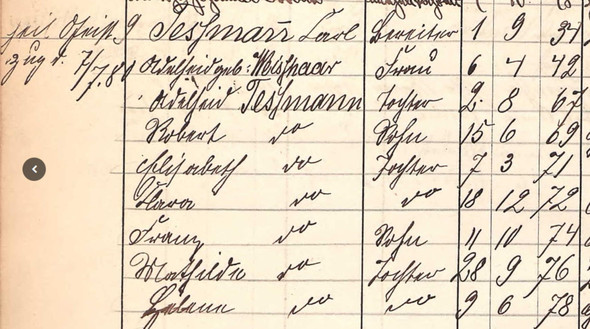 9 Tessmann Carl Bereiter 1 9 34
zug v. 7/7.81 Adelheid geb: Frau 6 4 42
Adelheid Tessmann Tochter 2. 8 67
Robert do Sohn 15 6 69
Elisabeth do Tochter 7 3 71
Clara do do 18 12 72
Franz do Sohn 11 10 74
Mathilde do Tochter 28 9 76
Helene do do 9 6 78